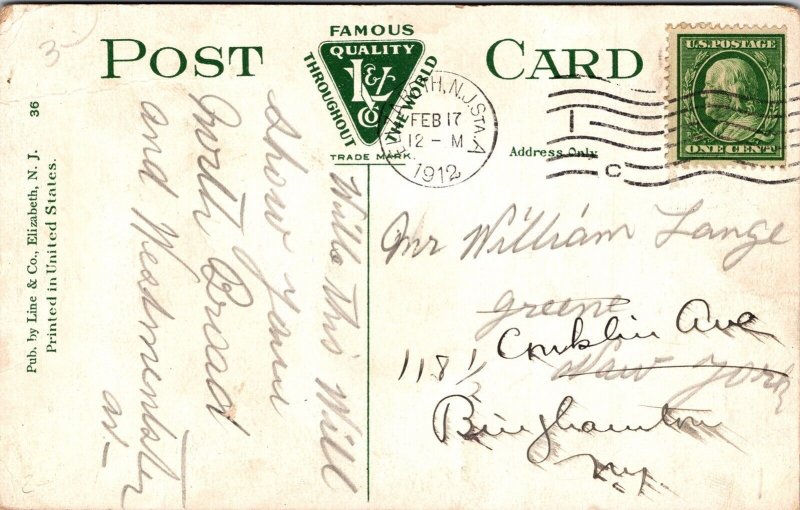 3
POST CARD
FAMOUS
QUALITY
THROUGHOUT
THE WORLD
L & Co
TRADE MARK.
N.J. STA. A
FEB 17
12 - M
1912
U.S. POSTAGE
ONE CENT
1
C
Address Only
36
Pub. by Line & Co., Elizabeth, N. J.
Printed in United States.
Hello this Will
show you
North Broad
and Westminster
av-
Mr William Lange
greene
Conklin Ave
118 1/2
New York
Binghamton
N.Y.